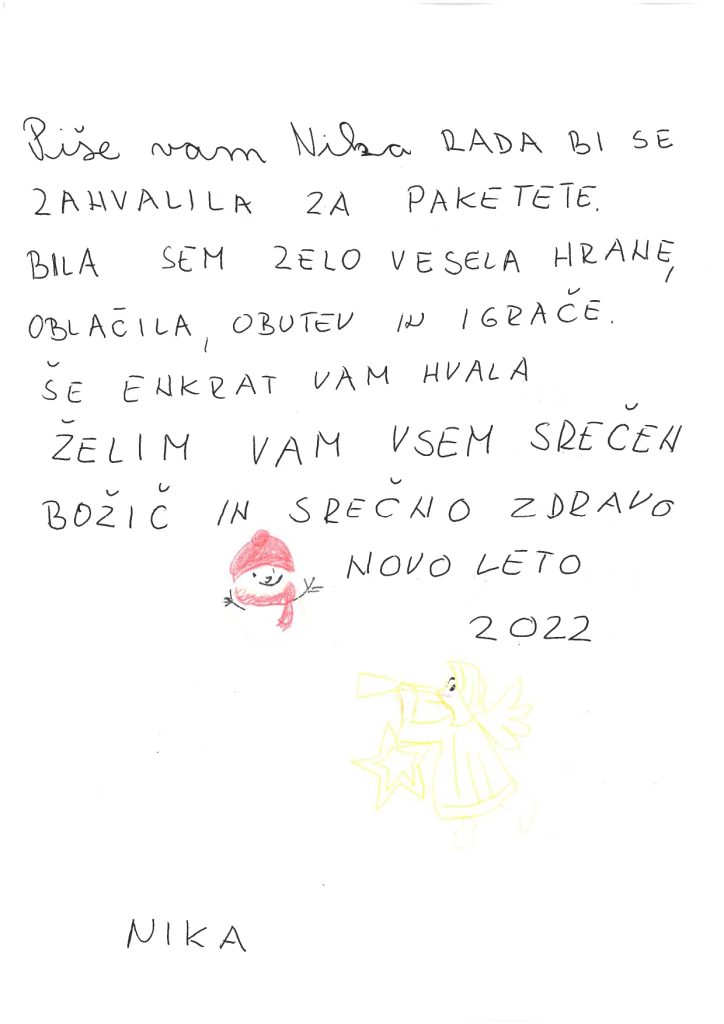 Piše vam Nika RADA BI SE
ZAHVALILA ZA PAKETETE.
BILA SEM ZELO VESELA HRANE,
OBLAČILA, OBUTEV IN IGRAČE.
ŠE ENKRAT VAM HVALA
ŽELIM VAM VSEM SREČEN
BOŽIČ IN SREČNO ZDRAVO
NOVO LETO
2022
NIKA